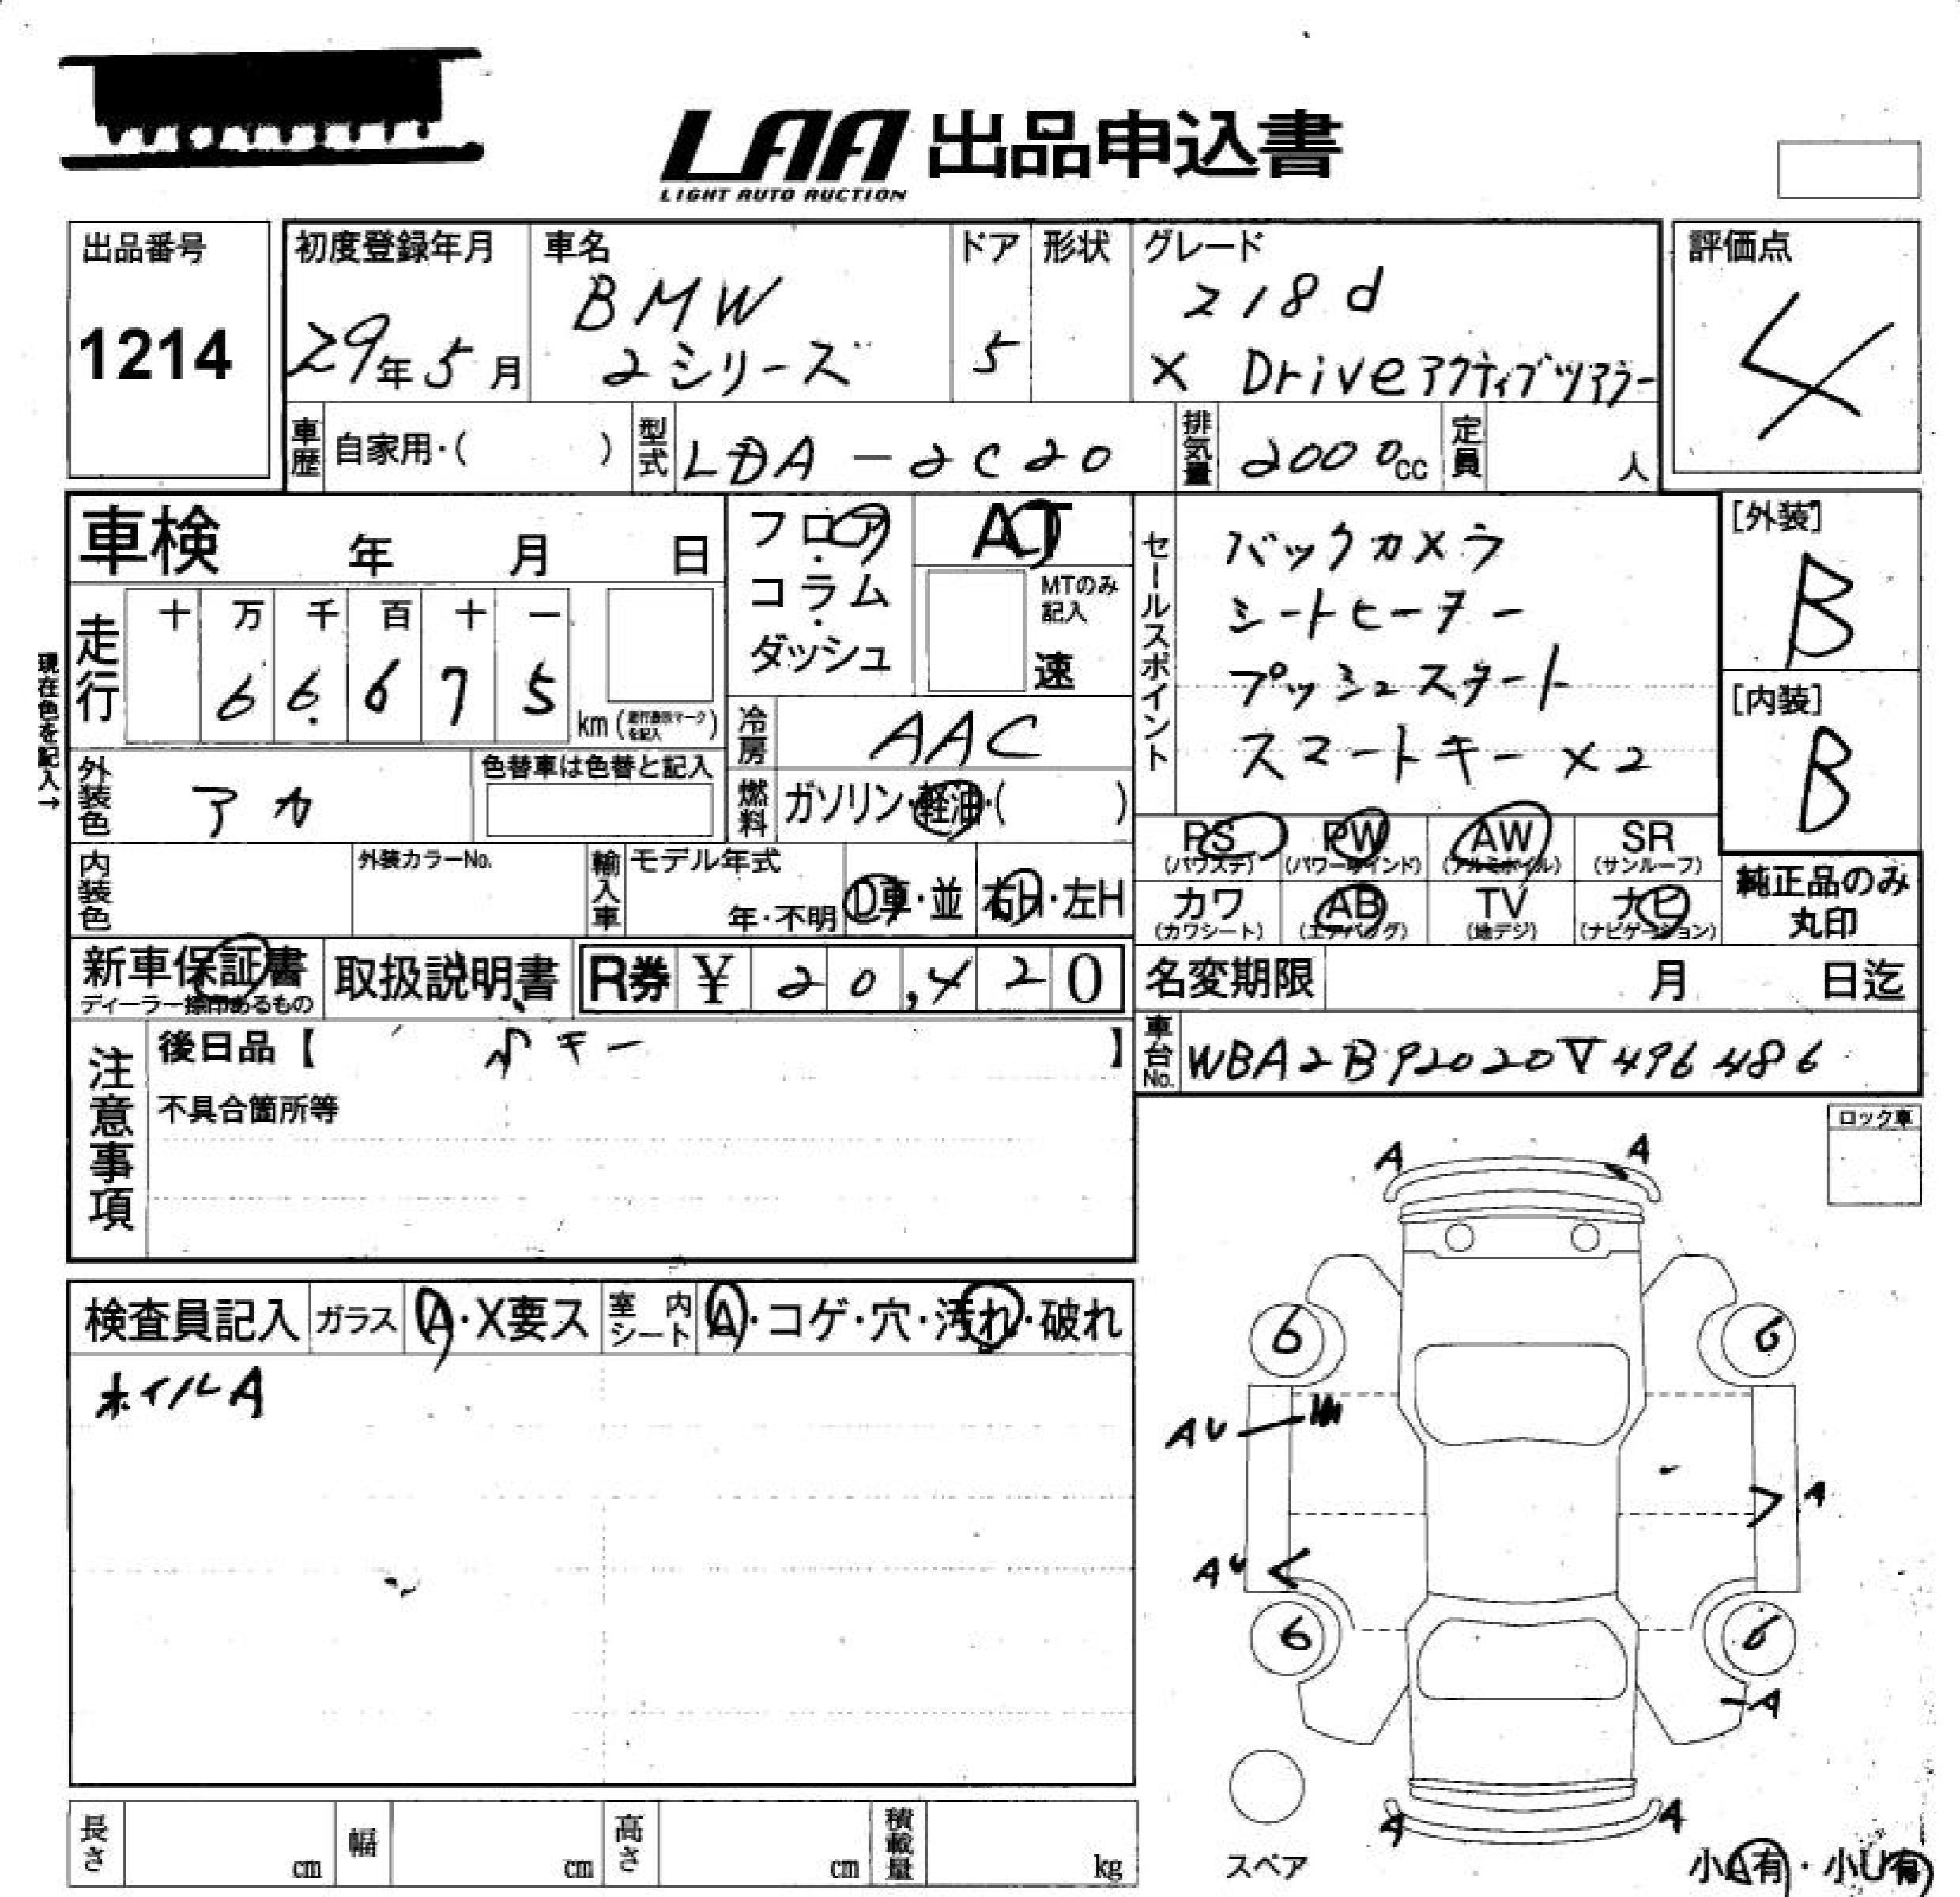 LAA 出品申込書
LIGHT AUTO AUCTION
出品番号
1214
初度登録年月
29年5月
車名
BMW
2シリーズ
ドア
5
形状
グレード
218d
X Driveアクティブツアラー
評価点
4
車歴 自家用・( )
型式 LDA-2C20
排気量 2000cc
定員 人
車検 年 月 日
現在色を記入→
走行
十 万 千 百 十 一
6 6. 6 7 5
km (走行表示マークを記入)
フロア・コラム・ダッシュ
AT
MTのみ記入
速
冷房 AAC
外装色 アカ
色替車は色替と記入
燃料 ガソリン・軽油・( )
内装色
外装カラーNo.
輸入車
モデル年式
年・不明
D車・並
右H・左H
セールスポイント
バックカメラ
シートヒーター
プッシュスタート
スマートキー×2
[外装]
B
[内装]
B
PS (パワステ) PW (パワーウインド) AW (アルミホイル) SR (サンルーフ)
カワ (カワシート) AB (エアバッグ) TV (地デジ) ナビ (ナビゲーション)
純正品のみ
丸印
新車保証書
ディーラー捺印あるもの
取扱説明書
R券 ¥ 20,420
名変期限 月 日迄
車台No. WBA2B92020V496486
注意事項
後日品【 キー 】
不具合箇所等
ロック車
検査員記入 ガラス A・X要ス 室内シート A・コゲ・穴・汚れ・破れ
ホイルA
A A
6 6
AU
A
AU
6 6
A
A A
スペア
小A有・小U有
長さ cm 幅 cm 高さ cm 積載量 kg